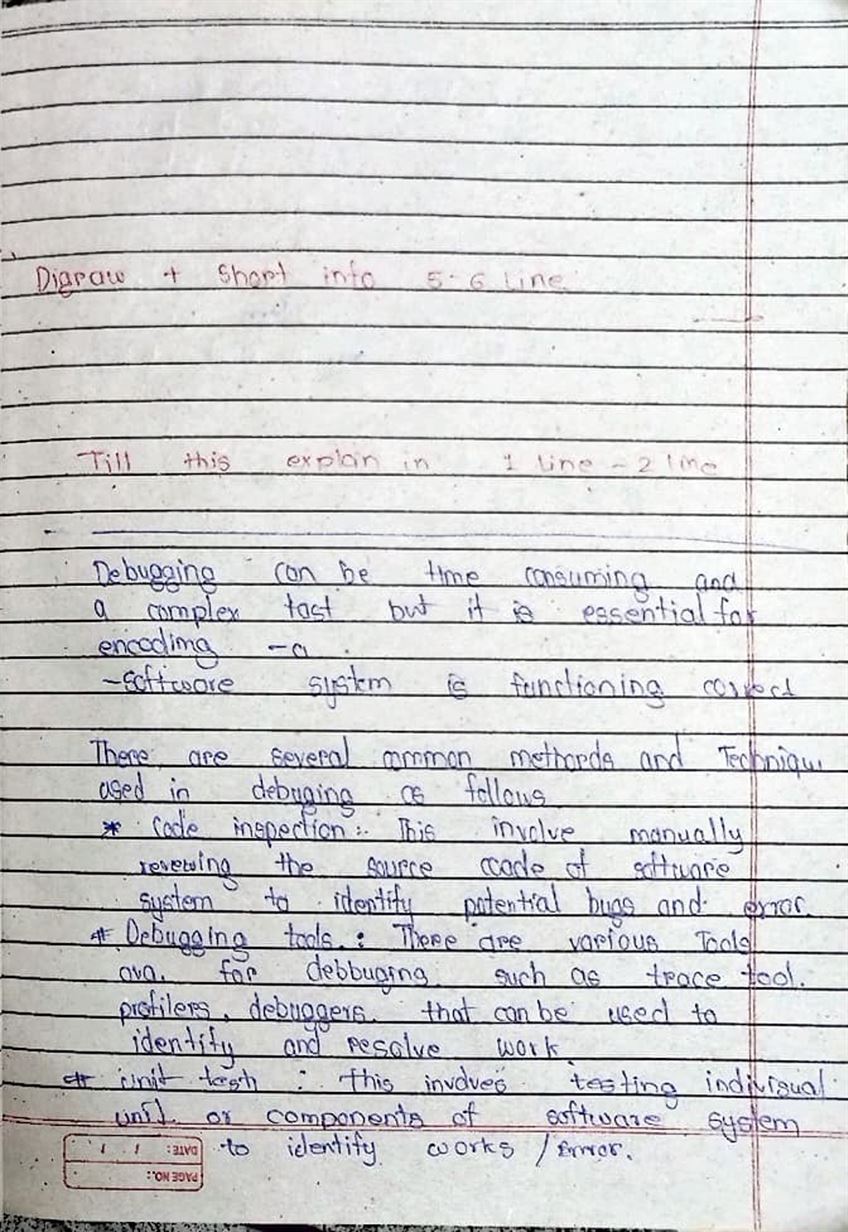 Digraw + Short info 5-6 Line
Till this explan in 1 line - 2 line
Debugging can be time consuming and
a complex tast but it is essential for
encoding - a
- software system is functioning correct
There are several common methords and Techniqu
used in debuging as follows
* Code inspection :- This involve manually
revewing the source ccode of software
system to identify potential bugs and error
# Debugging tools : There are various Tools
ava. for debbuging such as trace tool.
profilers, debuggers. that can be used to
identify and resolve work
# unit tesh : this involves testing indivisual
unit or components of software system
to identify works / Error.
DATE: / /
PAGE NO.: